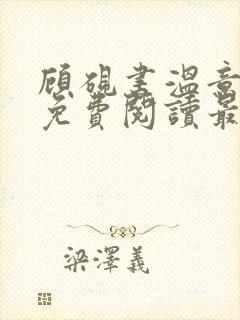 顧硯書溫意
免費閱讀最
梁澤義